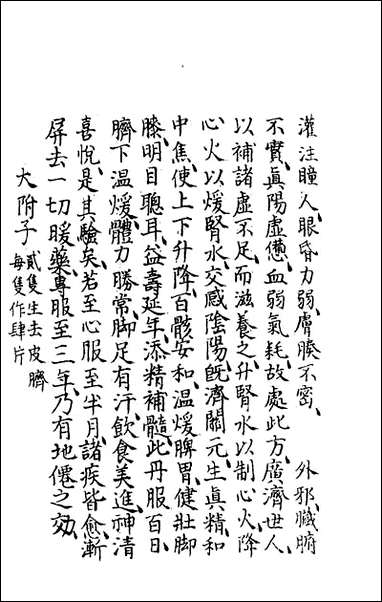 灌注瞳人眼昏力弱膚腠不密、外邪臟腑
不實、眞陽虛憊、血弱氣耗、故處此方、廣濟世人、
以補諸虛不足、而滋養之、升腎水以制心火、降
心火以煖腎水、交感陰陽、旣濟關元、生眞精、和
中焦、使上下升降、百骸安和、温煖脾胃、健壯脚
膝、明目聰耳、益壽延年、添精補髓、此丹服百日、
臍下温煖、體力勝常、脚足有汗、飲食美進、神清
喜悅、是其驗矣、若至心服至半月、諸疾皆愈、漸
屏去一切暖藥、專服至三年、乃有地僊之効、
大附子 貳隻生去皮臍
每隻作肆片